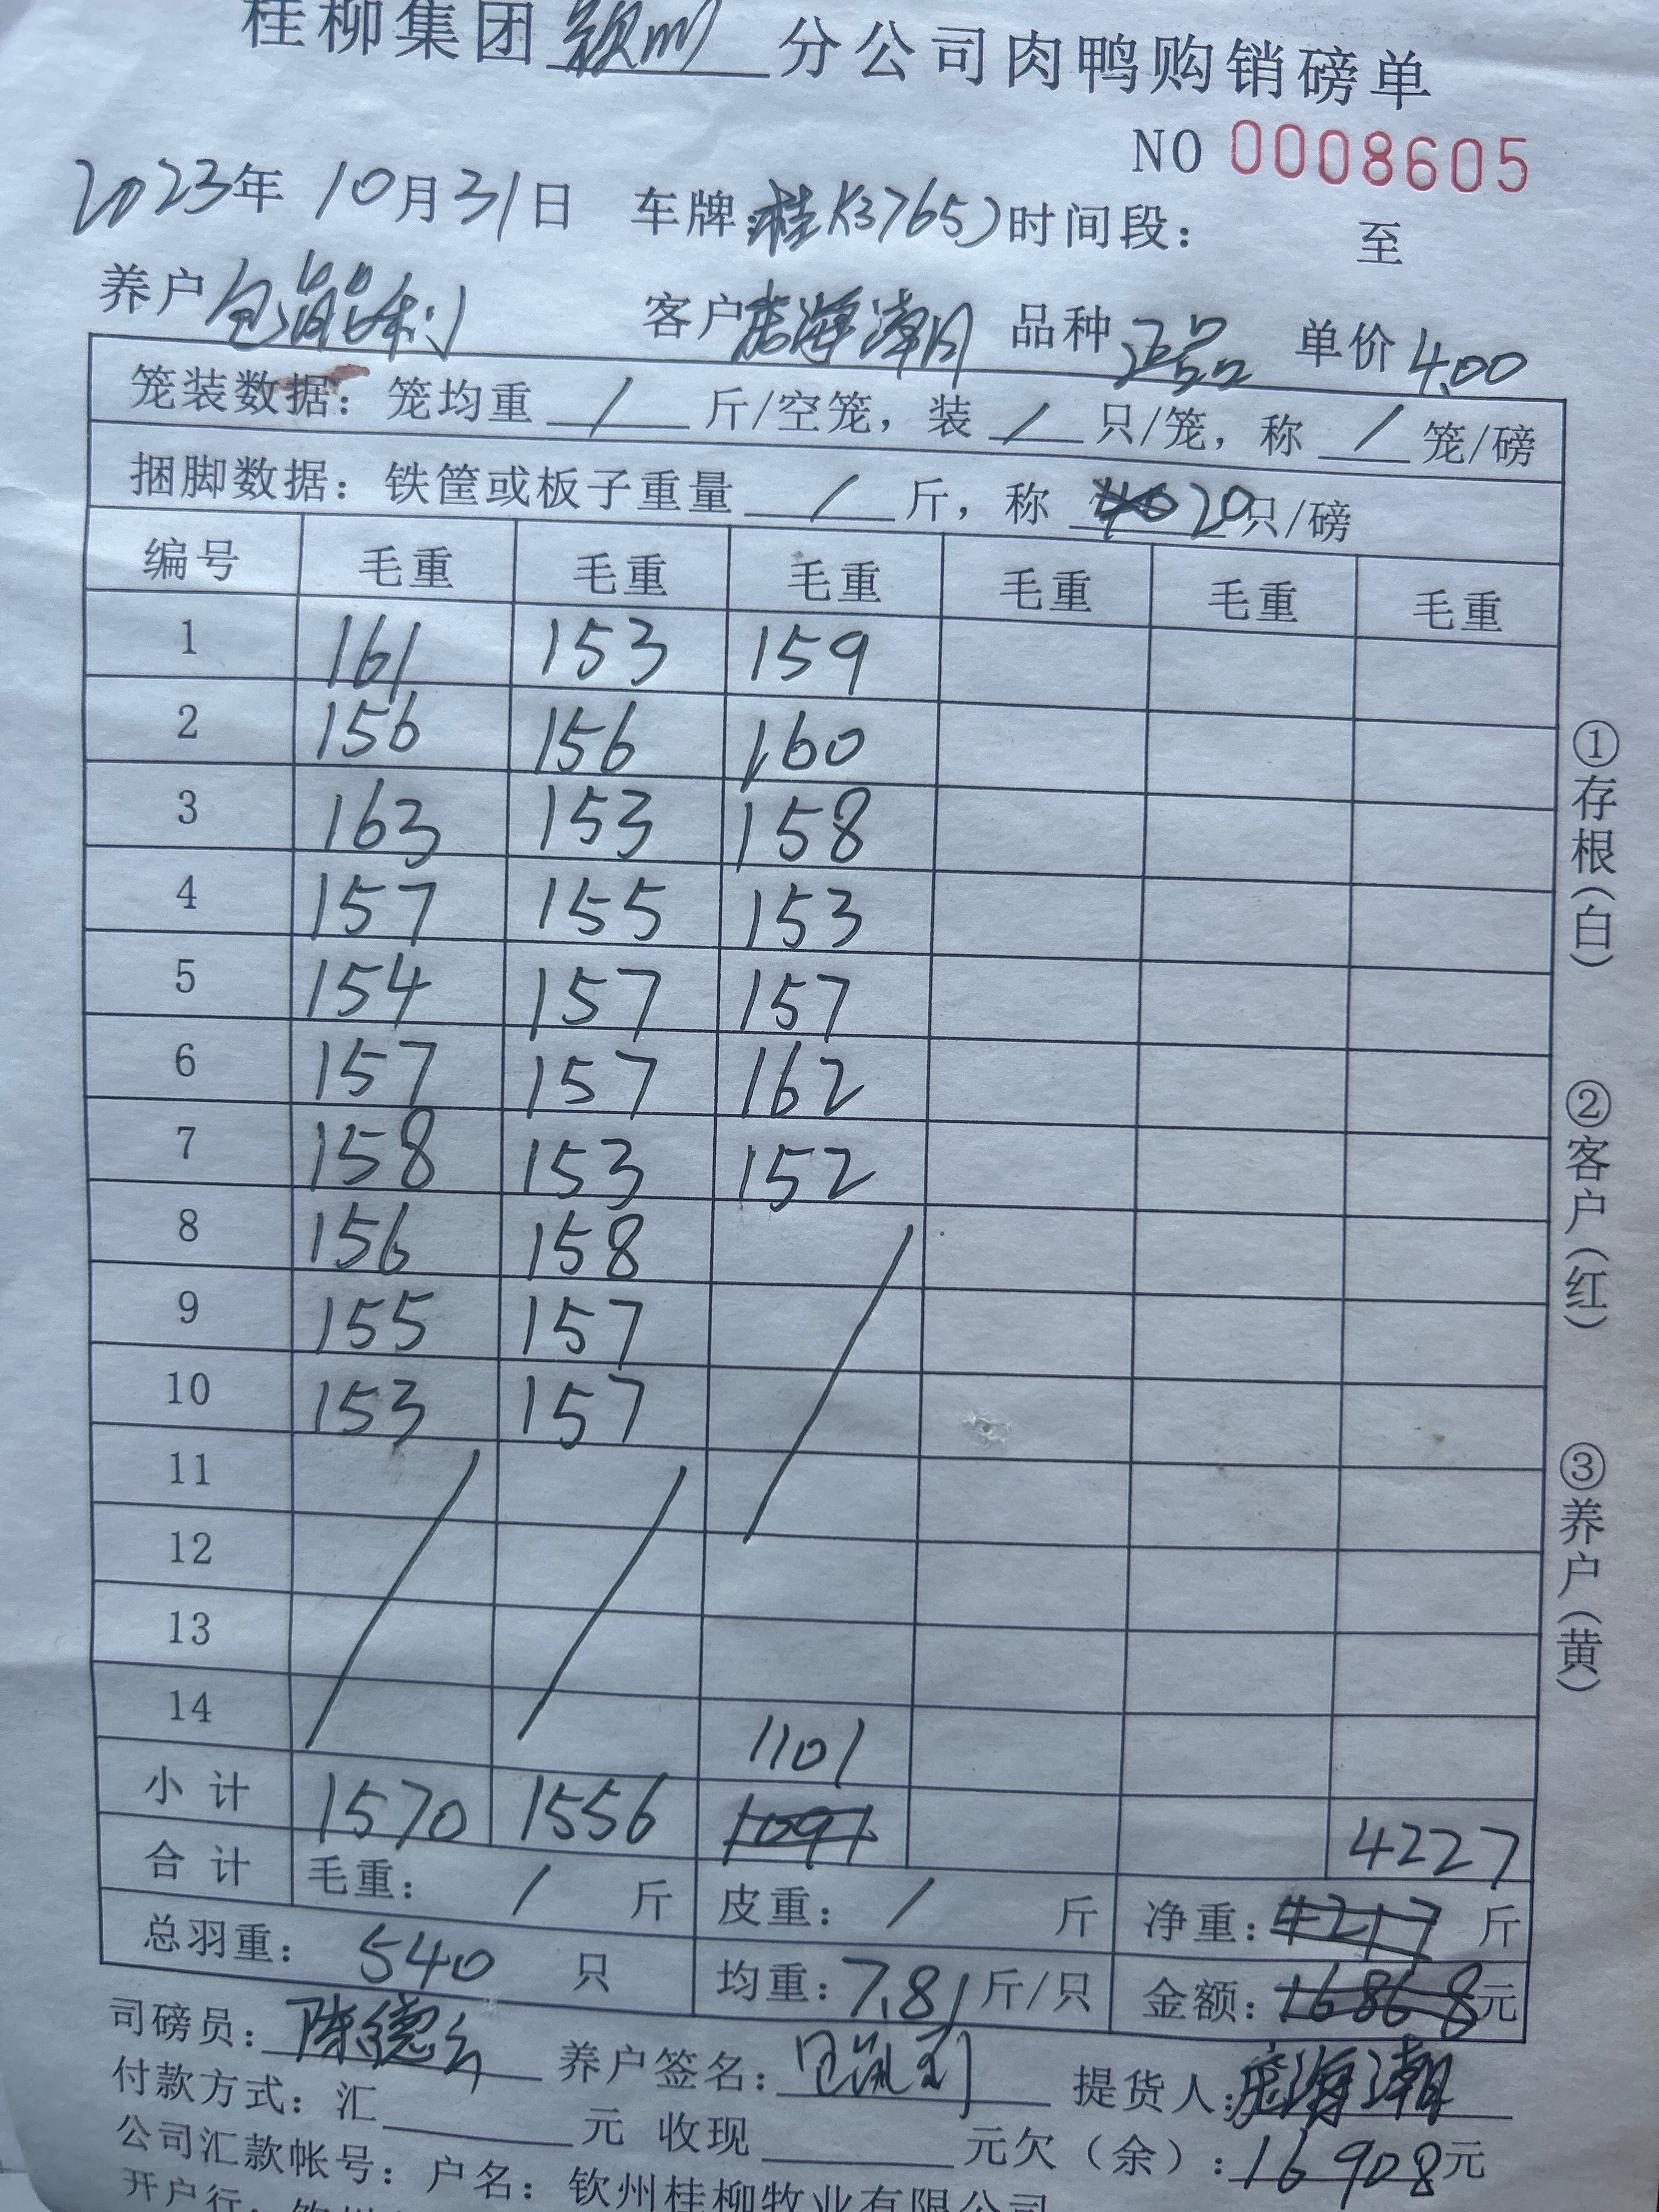 桂柳集团 分公司肉鸭购销磅单
NO 0008605
2023年 10月31日 车牌:桂K37653 时间段: 至
养户 客户 海潮 品种 正品 单价 4.00
笼装数据: 笼均重 / 斤/空笼, 装 / 只/笼, 称 / 笼/磅
捆脚数据: 铁筐或板子重量 / 斤, 称 40 20只/磅
编号 毛重 毛重 毛重 毛重 毛重 毛重
1 161 153 159
2 156 156 160
3 163 153 158
4 157 155 153
5 154 157 157
6 157 157 162
7 158 153 152
8 156 158
9 155 157
10 153 157
11
12
13
14 1101
小计 1570 1556 1091 4227
合计 毛重: / 斤 皮重: / 斤 净重: 4217 斤
总羽重: 540 只 均重: 7.81斤/只 金额: 16868元
司磅员: 陈德 养户签名: 提货人: 海潮
付款方式: 汇 元 收现 元欠(余): 16908元
公司汇款帐号: 户名: 钦州桂柳牧业有限公司
开户行:
①存根(白)
②客户(红)
③养户(黄)